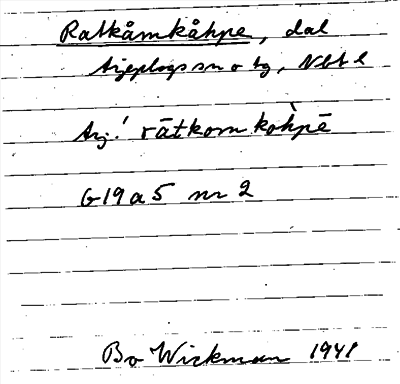 Ratkåmkåhpe, dal
Arjeplogs sn o tg, Nbt l
Arj.! rātkom kòhpē
G19a5 nr 2
Bo Wickman 1941